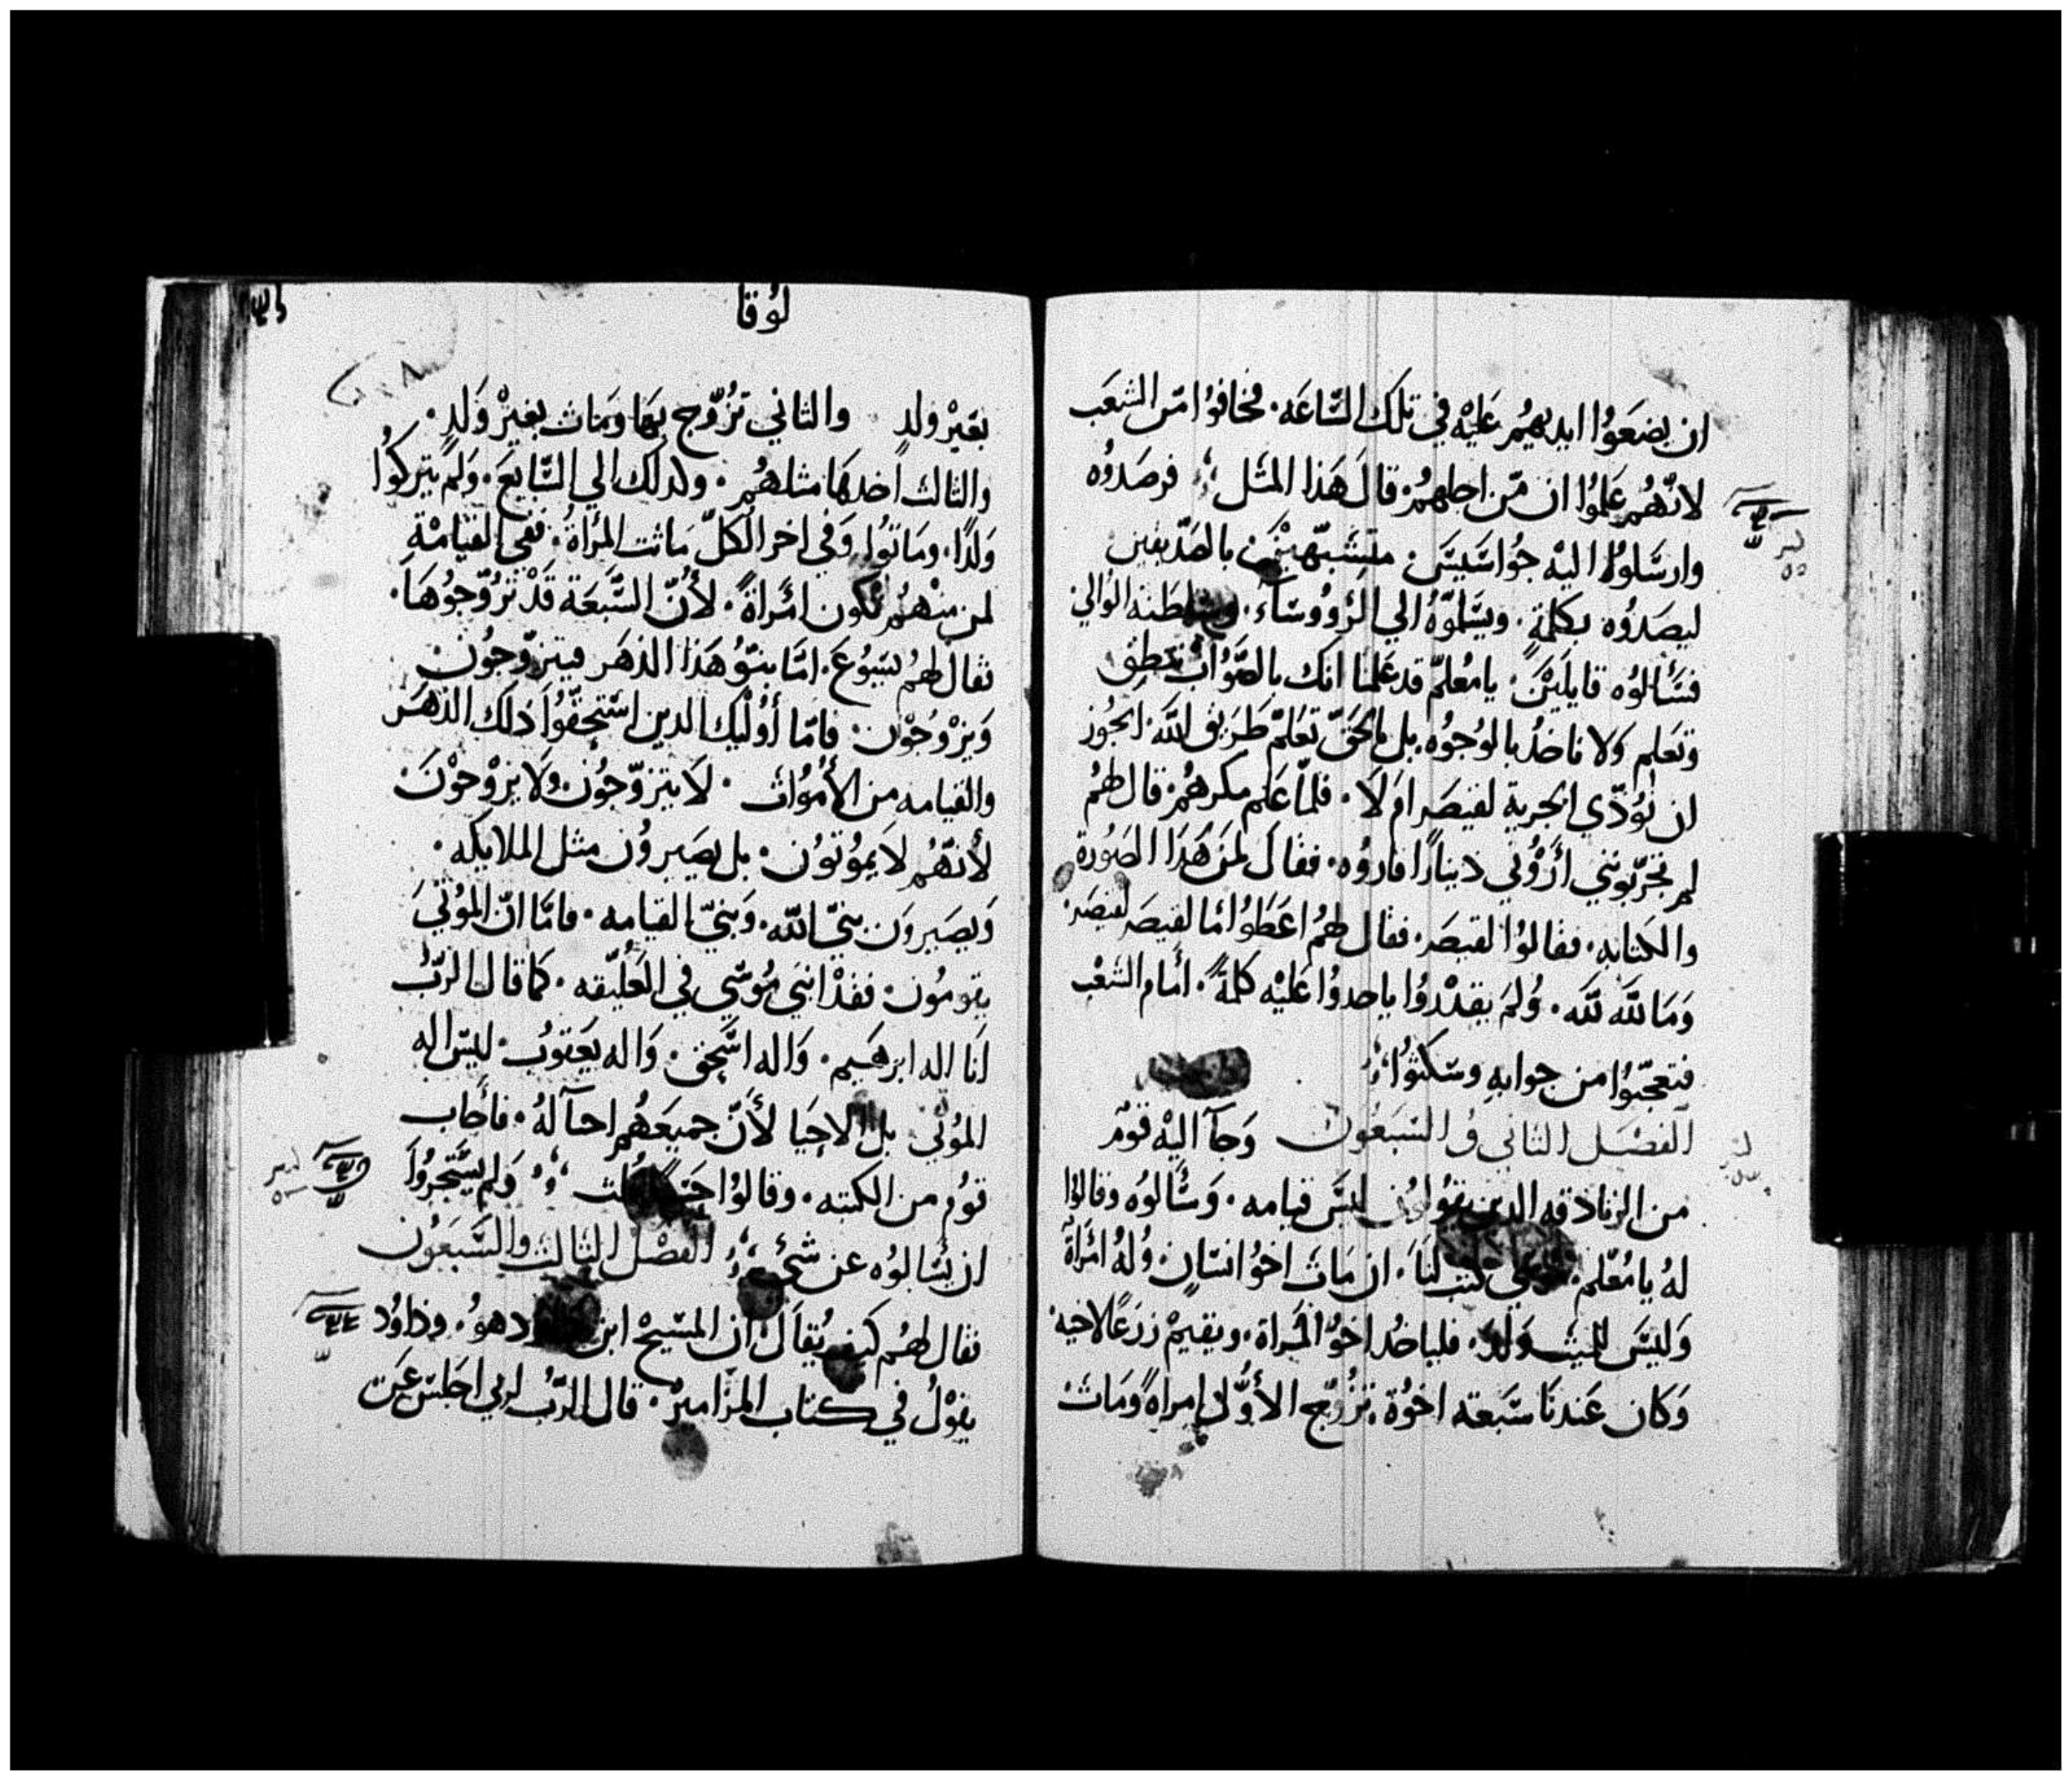 ان يضعَوُا ايديهُم عَليْه في تلك السَّاعَه. فخافوُا مّن الشعَب
لانّهُم عَلموُا ان مّن اجلهمُ. قالَ هَذا المثل فرصَدوُه
وارسَلوُا اليْه جوُاسَيسَ. متشَبّهيْن بالصَدّيقين
ليصَدوُه بكلمةٍ. ويسَلموّهُ الي الرؤوُسَاء. وسَلطَنة الوالي
فسَألوُه قايلَيْن. يا مُعلمّ قد عَلمنا انك بالصَّوُاب تنطق
وتعَلم ولا تاخذُ بالوُجوُه. بل بالحَقّ تعَلمّ طَريق اللّه. ايجُوز
ان نوُدّي الجزية لقيصَر امَ لَا. فلمّا عَلم مكرهمُ. قال لهمُ
لم تجَرّبوُنني أرَوُني دينارًا فاروُه. ففال لمَن هَذا الصَوُرة
والكتابه. فقالوُا لقيصَر. فقال لهمُ اعَطوُا مَا لقيصَر لقيصَر.
وَمَا للّه للّه. وُلمَ يقدْروُا ياخدوُا عَليْه كلمةً. أمَام الشعْب
فتعجّبوُا من جوابهِ وسَكتوُا
الفصْل الثاني وُ السّبَعوُن وَجآ اليْه قوُم
من الزنادقه الدين يقوُلوُن ليسَ قيامه. وَسَألوُه وقالوُا
لهُ يا مُعّلم. كتب لنَا. ان مَات اخوُ انسَانٍ. وُلهُ امَرَأة
وَليْسَ للميّت وَلد. فلياخُد اخوُ المَراة. ويقيمْ زرَعًا لاخيه.
وَكان عَندنَا سَبَعة اخوُة. تزوُّج الأوَّل امراةً وُمَات
لوُقا
بغيَرْ ولدٍ والثاني تزُوّج بهَا ومَات بغيرْ وَلدٍ.
والثالث اخدهَا مثلهُم. وكدلك الي السَّابعَ. وَلم يتركوُا
وَلدًا، ومَاتوُا وَفي اخر الكلّ مَاتت المرَأة. ففي القيامْةِ
لمن منْهمُ تكون امَرأةً. لأنّ السَّبَعَة قدْ تزوُّجوُهَا.
فقال لهمُ يسَوُعَ. امَّا بنوُ هَذا الدهَر فيتزوّجوُن
وَيزْوُجوْن. فامّا أوُلْيك الدين استحقّوُا ذلك الدهَر
والقيامه من الأمْوُات. لَا يتزوّجوُن ولَا يزوْجوْنَ
لأنهّمُ لَا يموُتوُن. بل يصَيروُن مثل الملايكه.
وَيصَيروَن بنيّ اللّه. وَبنيّ القيامه. فامَّا انّ الموُتيَ
يقومُون. ففدْ انبيَ مُوسّي في العَليّقه. كما قال الرّبُ
انَا اله ابرهَيم. وَاله اسَّحق. وَاله يعَقوُب. ليسَ اله
الموُتيَ بل الاحيَا لأنَّ جميعَهُم احيآ لهُ. فأجاب
قوُم من الكتبه. وقالوُا وَلم يسَّتجروُا
ان يسَالوُه عن شيْء الفصْل الثالث والسَّبَعوُن
فقال لهمُ كيف يُقالَ. ان المسّيحْ ابن هوُ. وداوُد
يقوْلُ في كتاب المزاميرُ. قال الرّبُ لربي اجلسَ عَن